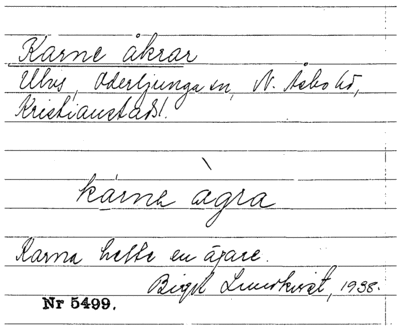 Karne åkrar
Ulvs, Oderljunga sn, N. Åsbo hd,
Kristianstads l.
kárnɐ àgra
Karna hette en ägare.
Birgit Lundkvist, 1938.
Nr 5499.